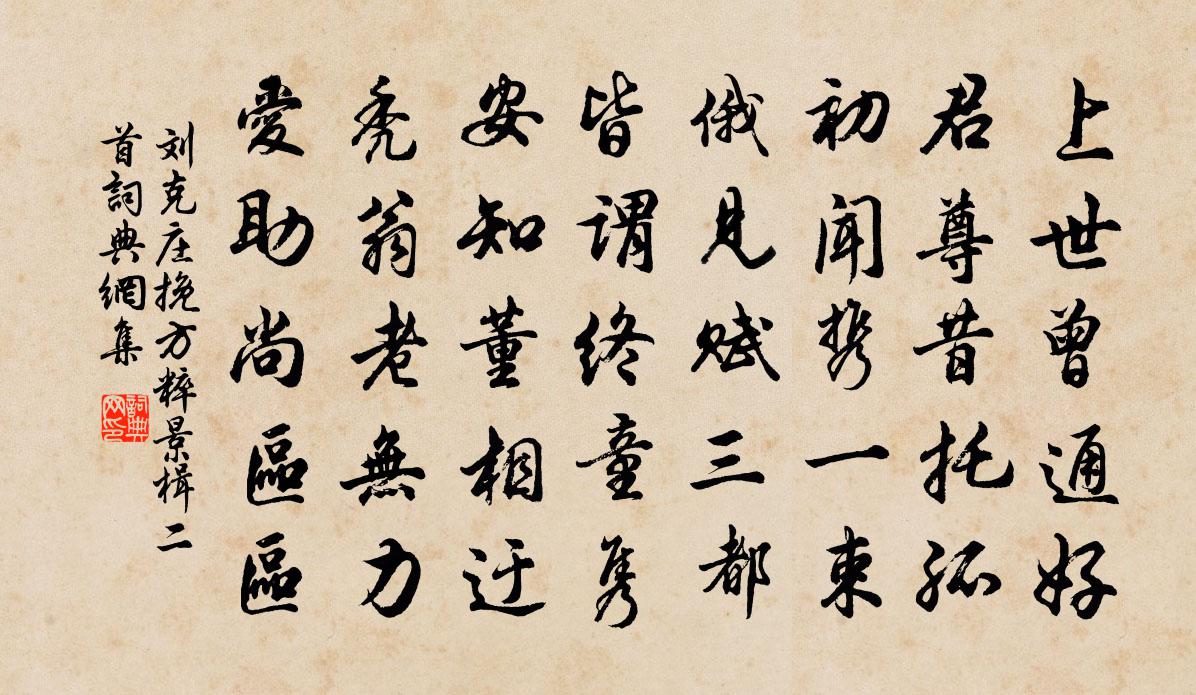 上世曾通好
君尊昔托孤
初闻携一束
俄见赋三都
皆谓终童隽
安知董相迂
秃翁老無力
愛助尚區區
刘克庄挽方粹景楫二
首詞典網集
詞典
网印